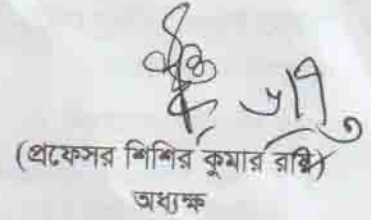 (প্রফেসর শিশির কুমার রক্ষি)
অধ্যক্ষ